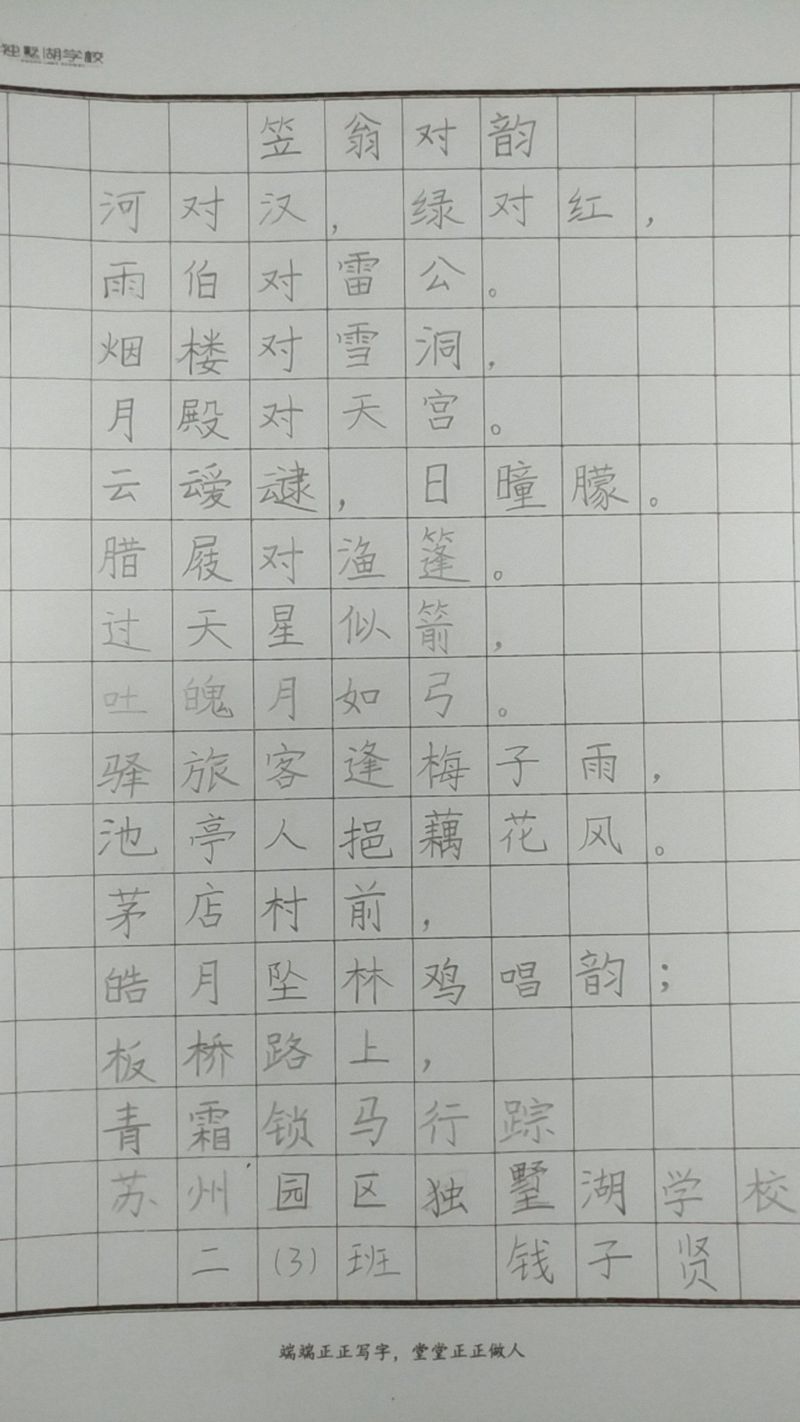 独墅湖学校
笠翁对韵
河对汉，绿对红，
雨伯对雷公。
烟楼对雪洞，
月殿对天宫。
云叆叇，日曈朦。
腊屐对渔篷。
过天星似箭，
吐魄月如弓。
驿旅客逢梅子雨，
池亭人挹藕花风。
茅店村前，
皓月坠林鸡唱韵；
板桥路上，
青霜锁马行踪
苏州园区独墅湖学校
二（3）班 钱子贤
端端正正写字，堂堂正正做人